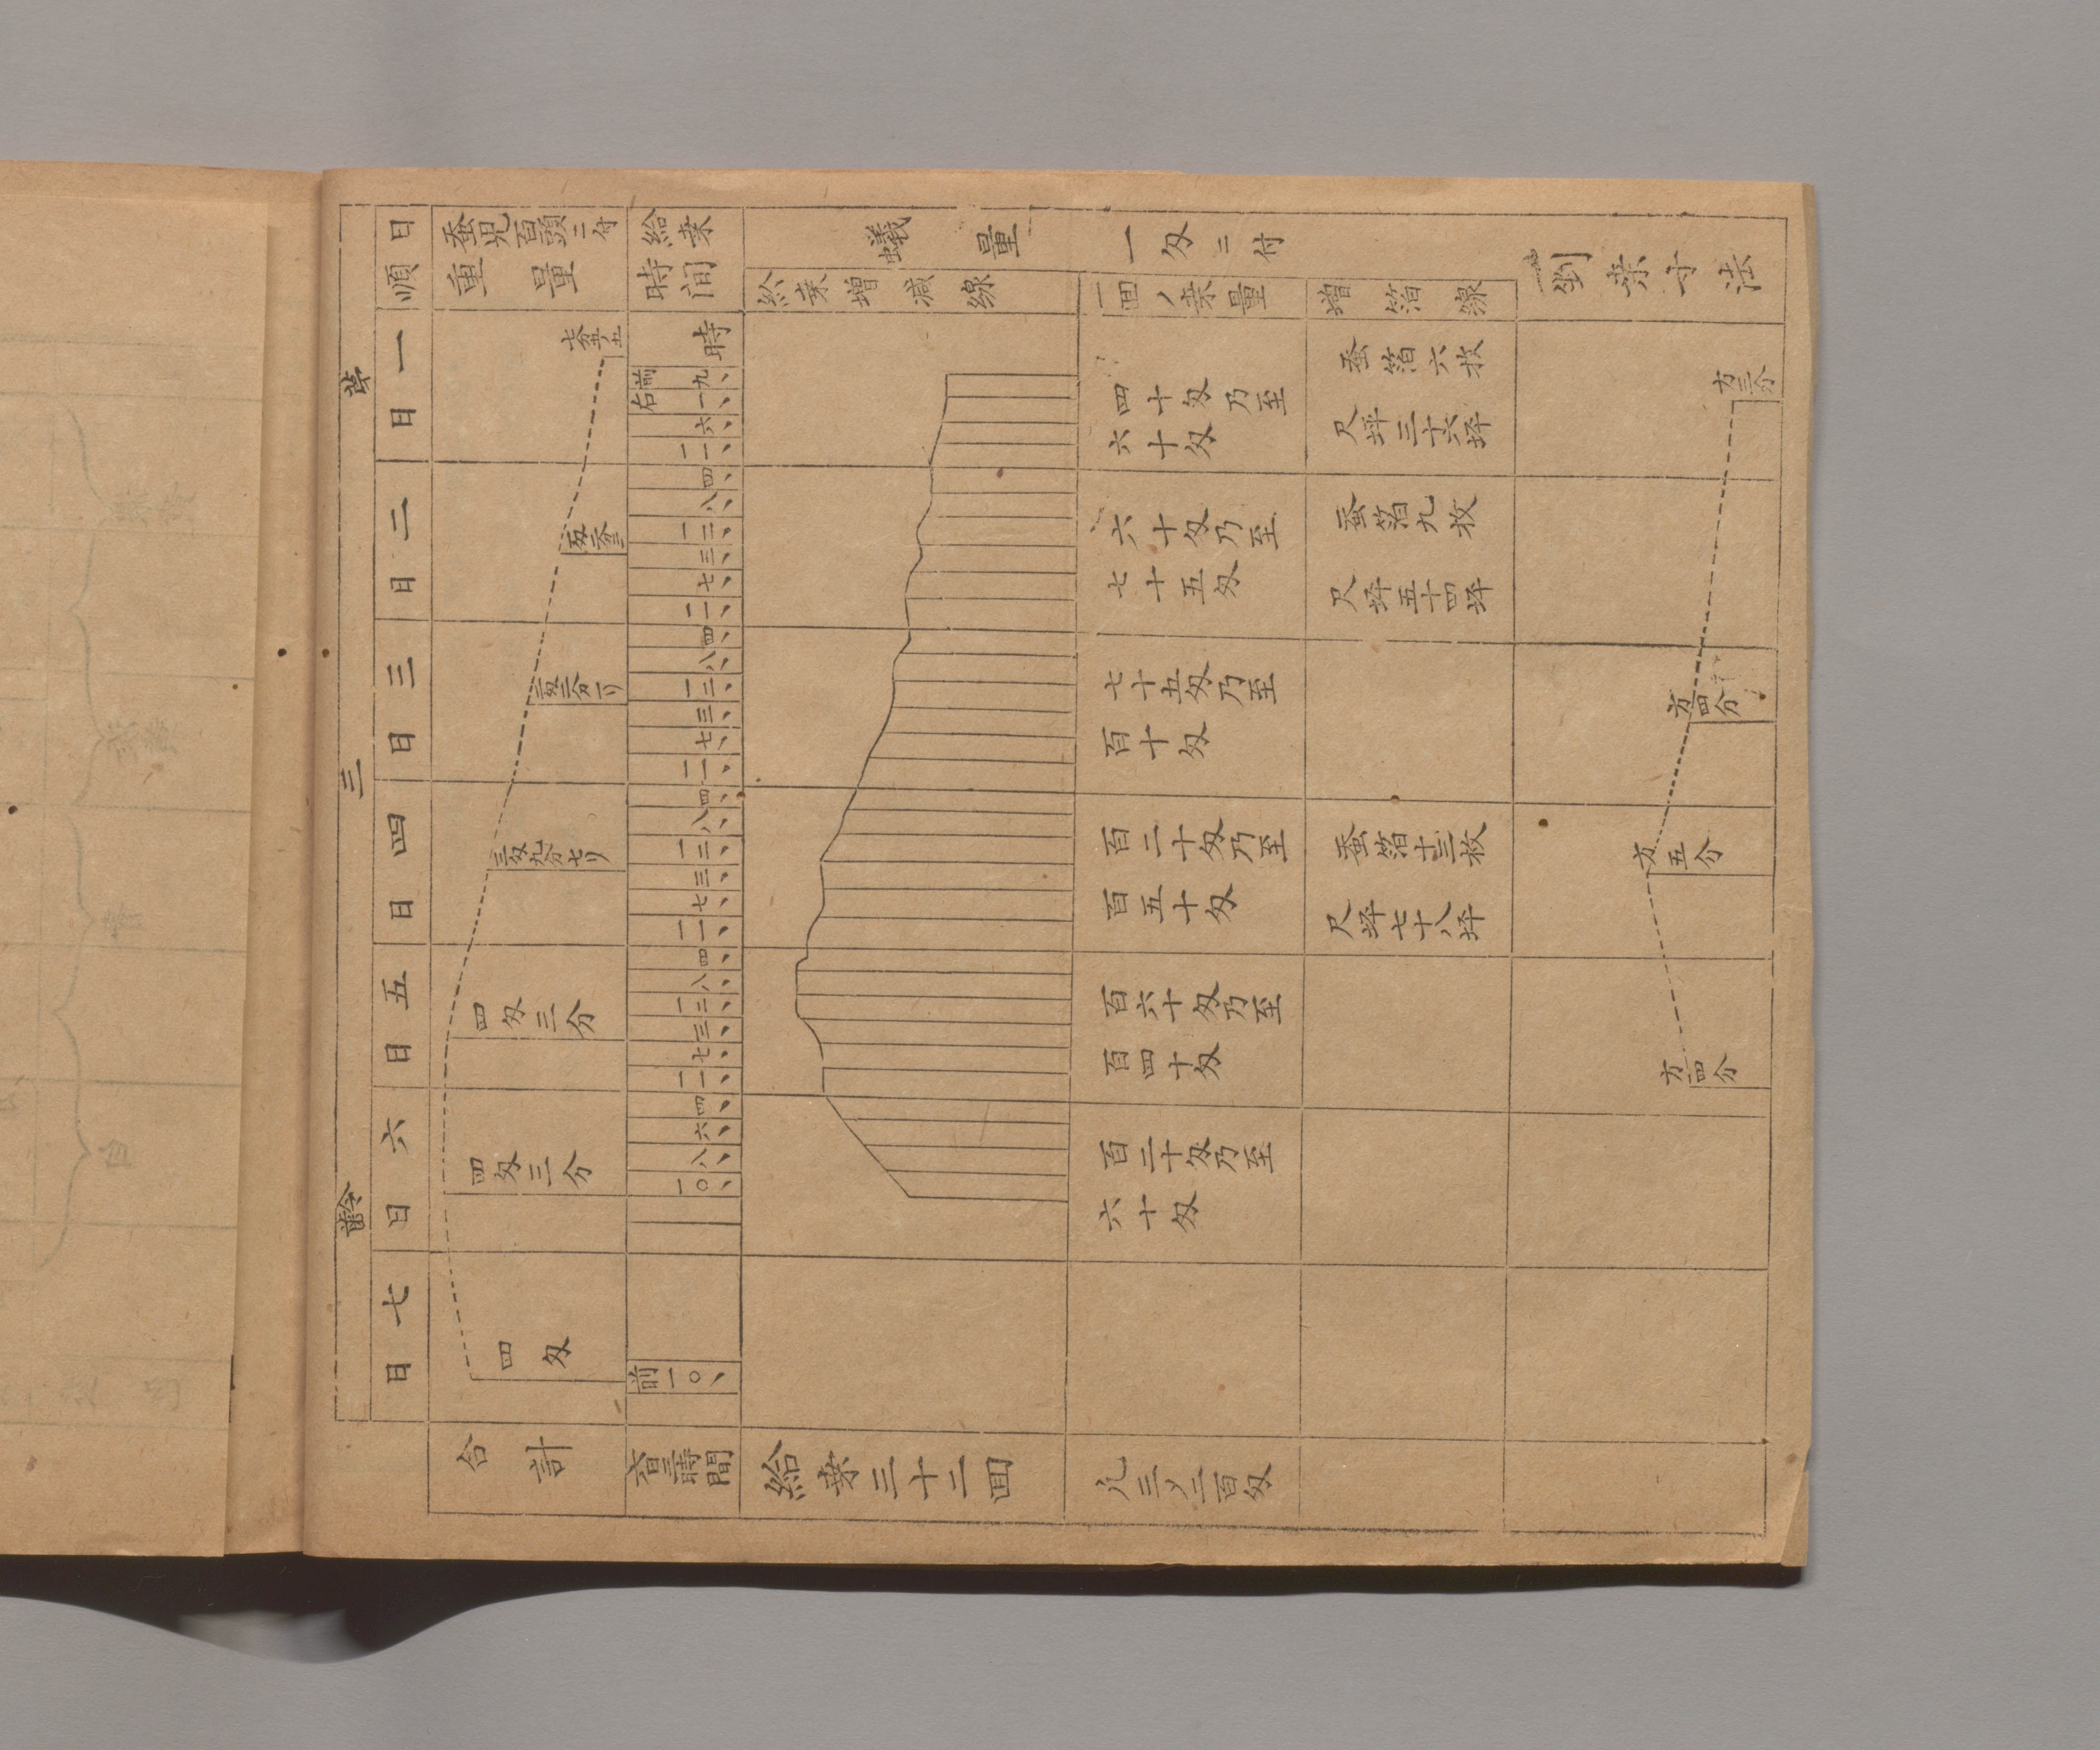 第三齢
日順
一日
二日
三日
四日
五日
六日
七日
蚕児百頭ニ付
重量
五匁三分
四匁三分
四匁三分
四匁
合計
給桒
時间
時
前
九、
一、
六、
一一、
四、
八、
一二、
三、
七、
一一、
四、
八、
一二、
三、
七、
一一、
四、
八、
一二、
三、
七、
一一、
四、
八、
一二、
三、
七、
一一、
四、
六、
八、
一〇、
前
一〇、
時間
蟻量一匁ニ付
給桒増減線
給桒三十二回
一回ノ桒量
四十匁乃至
六十匁
六十匁乃至
七十五匁
七十五匁乃至
百十匁
百二十匁乃至
百五十匁
百六十匁乃至
百四十匁
百二十匁乃至
六十匁
凡三メ二百匁
増箔線
蚕箔六枚
尺坪三十六坪
蚕箔九枚
尺坪五十四坪
蚕箔十三枚
尺坪七十八坪
剉桒寸法
方三分
方四分
方五分
方四分